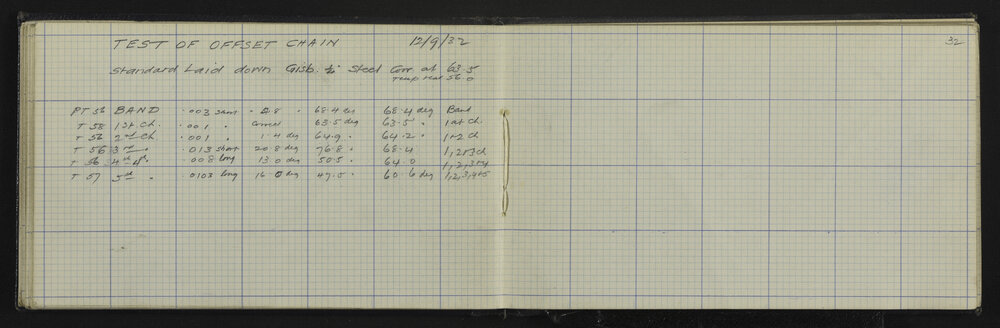 TEST OF OFFSET CHAIN 12/9/32
32
Standard Laid down Gisb. ½" Steel Corr at 63.5
Temp was 56.0
PT 56 BAND .003 short 4.8 " 68.4 deg 68.4 deg Band
T 58 1st Ch. .001 " Correct 63.5 deg 63.5 " 1st ch.
T 56 2nd Ch .001 " 1.4 deg 64.9 " 64.2 " 1+2 ch
T 56 3rd " .013 short 20.8 deg 76.8 " 68.4 1,2+3 ch
T 56 4th " .008 long 13.0 deg 50.5 " 64.0 1,2,3+4
T 57 5th " .0103 long 16.0 deg 47.5 " 60.6 deg 1,2,3,4+5